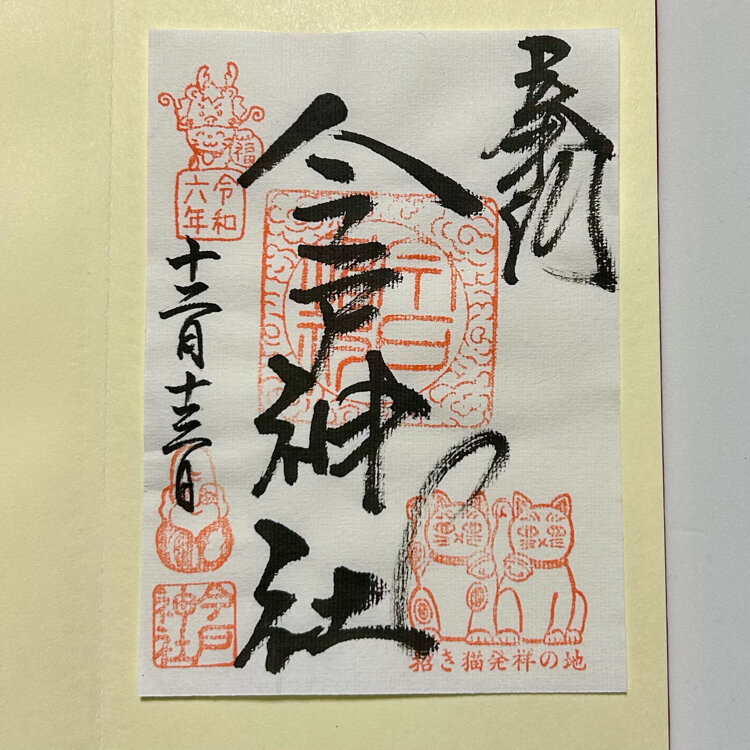 奉拝
今戸神社
福
令和
六年
十二月十三日
今戸
神社
招き猫発祥の地